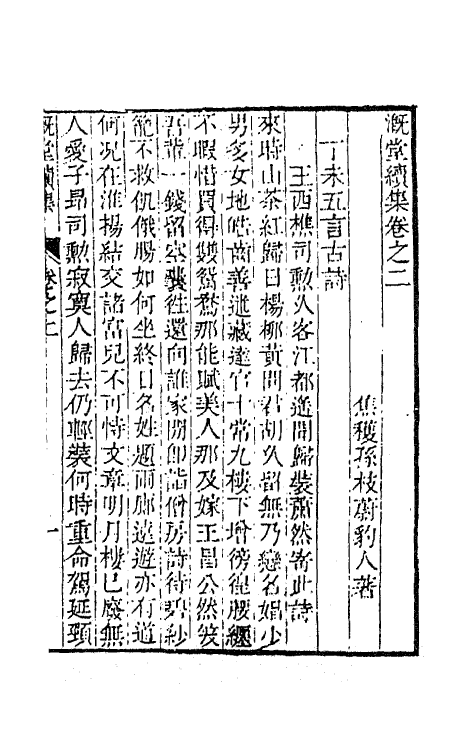 溉堂續集卷之二
焦穫孫枝蔚豹人著
丁未五言古詩
王西樵司勳久客江都遙聞歸裝蕭然寄此詩
來時山茶紅歸日楊柳黃問君胡久留無乃戀名娼少
男多女地皓齒善迷藏達官十常九樓下增徬徨腰纏
不暇惜買得雙鴛鴦那能賦美人那及嫁王昌公然笑
吾輩一錢留空囊徃還向誰家閒卽詣僧房詩待碧紗
籠不救飢俄腸如何坐終日名姓題兩廊遠遊亦有道
何況在淮楊結交諸富兒不可恃文章明月樓已廢無
人愛子昻司勳寂寞人歸去仍輕裝何時重命駕延頸
溉堂續集 卷之二 一